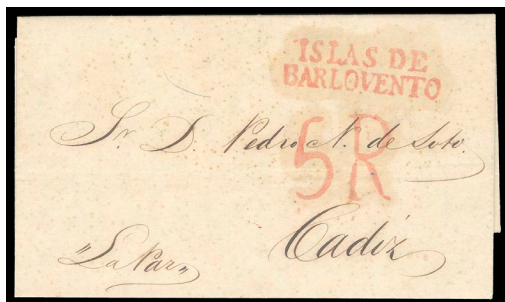 ISLAS DE
BARLOVENTO
Sr. D. Pedro N. de Soto.
5R
Cadiz
"La Paz"